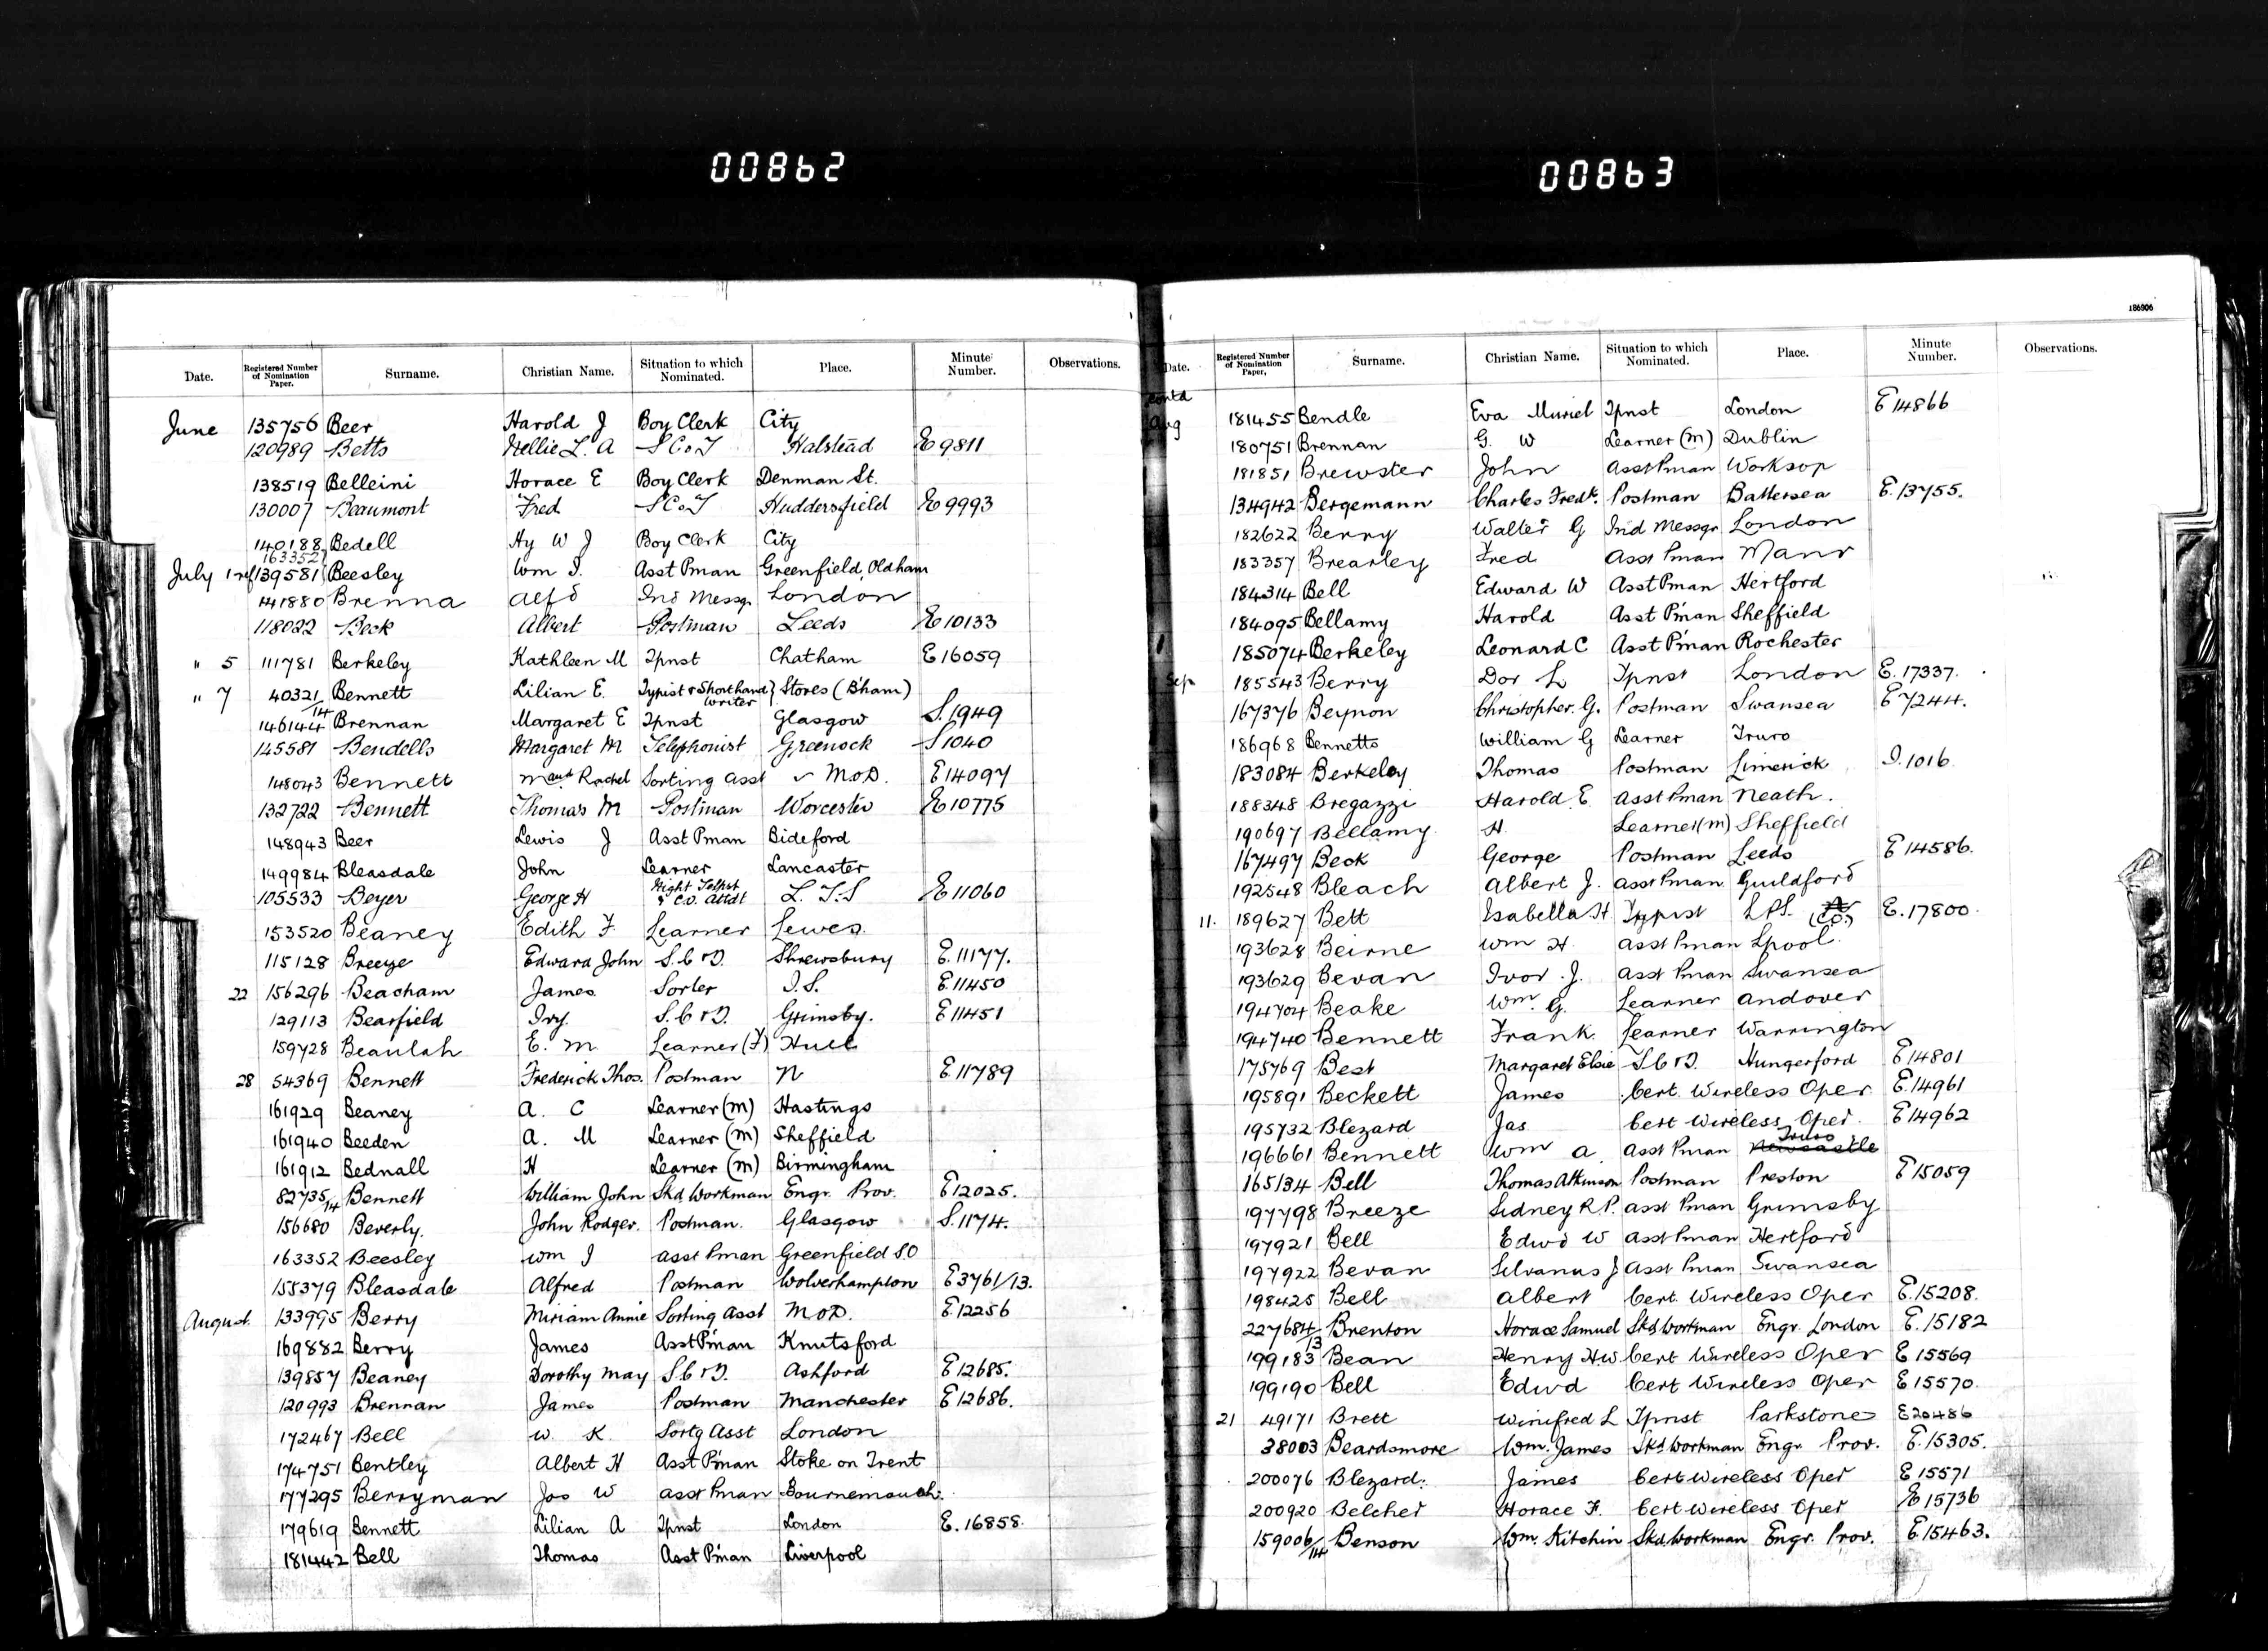 00862
00863
186906
Date. Registered Number of Nomination Paper. Surname. Christian Name. Situation to which Nominated. Place. Minute Number. Observations.
June 135756 Beer Harold J Boy Clerk City
120989 Betts Nellie L. A S C & T Halstead E 9811
138519 Belleini Horace E Boy Clerk Denman St.
130007 Beaumont Fred S C & T Huddersfield E 9993
140188 Bedell Hy W J Boy Clerk City
163352
July 1 ref 139581 Beesley Wm I. Asst Pman Greenfield, Oldham
141880 Brenna Alfd Ind Messgr London
118022 Beck Albert Postman Leeds E 10133
" 5 111781 Berkeley Kathleen M Tpnst Chatham E 16059
" 7 40321/14 Bennett Lilian E. Typist & Shorthand writer } Stores (B'ham)
146144 Brennan Margaret E Tpnst Glasgow S. 1949
145581 Bendells Margaret M Telephonist Greenock S 1040
148043 Bennett Maud Rachel Sorting Asst M.O.D. E 14097
132722 Bennett Thomas M Postman Worcester E 10775
148943 Beer Lewis J Asst Pman Bideford
149984 Bleasdale John Learner Lancaster
105533 Beyer George H Night Telpst & C.O. Attdt L. T. S E 11060
153520 Beaney Edith F. Learner Lewes
115128 Breeze Edward John S. C & T. Shrewsbury E. 11177.
22 156296 Beacham James Sorter I. S. E 11450
129113 Bearfield Ivy. S. C & T. Grimsby. E 11451
159728 Beaulah E. M Learner (F) Hull
28 54369 Bennett Frederick Thos. Postman N E 11789
161929 Beaney A. C Learner (M) Hastings
161940 Beeden A. M Learner (M) Sheffield
161912 Bednall H Learner (M) Birmingham
82735/14 Bennett William John Skd Workman Engr. Prov. E 12025.
156680 Beverly. John Rodger. Postman. Glasgow S. 1174.
163352 Beesley Wm I Asst Pman Greenfield S.O
155379 Bleasdale Alfred Postman Wolverhampton E 3761/13.
August. 133995 Berry Miriam Annie Sorting Asst M.O.D. E 12256
169882 Berry James Asst P'man Knutsford
139857 Beaney Dorothy May S. C & T. Ashford E 12685.
120993 Brennan James Postman Manchester E 12686.
172467 Bell W. K. Sortg Asst London
174751 Bentley Albert H Asst P'man Stoke on Trent
177295 Berryman Jos W Asst Pman Bournemouth.
179619 Bennett Lilian A Tpnst London E. 16858
181442 Bell Thomas Asst P'man Liverpool
Date. Registered Number of Nomination Paper. Surname. Christian Name. Situation to which Nominated. Place. Minute Number. Observations.
contd
Aug 181455 Bendle Eva Muriel Tpnst London E 14866
180751 Brennan G. W Learner (M) Dublin
181851 Brewster John Asst Pman Worksop
134942 Bergemann Charles Fredk. Postman Battersea E. 13755.
182622 Berry Walter G Ind Messgr London
183357 Brearley Fred Asst Pman Manr
184314 Bell Edward W Asst Pman Hertford
184095 Bellamy Harold Asst P'man Sheffield
185074 Berkeley Leonard C Asst P'man Rochester
Sep 185543 Berry Dor L Tpnst London E. 17337.
167376 Beynon Christopher. G. Postman Swansea E 7244.
186968 Bennetts William G Learner Truro
183084 Berkeley Thomas Postman Limerick I. 1016
188348 Bregazzi Harold E. Asst Pman Neath.
190697 Bellamy H. Learner (M) Sheffield
167497 Beck George Postman Leeds E 14586.
192548 Bleach Albert J. Asst Pman Guildford
11. 189627 Bett Isabella H Typist L.P.S. (Co.) E. 17800.
193628 Beirne Wm H. Asst Pman Lpool.
193629 Bevan Ivor. J. Asst Pman Swansea
194704 Beake Wm. G. Learner Andover
194740 Bennett Frank. Learner Warrington
175769 Best Margaret Elsie S. C & T. Hungerford E 14801
195891 Beckett James Cert. Wireless Oper. E. 14961
195732 Blezard Jas Cert Wireless Oper. E 14962
196661 Bennett Wm A. Asst Pman Newcastle Truro
165134 Bell Thomas Atkinson Postman Preston E 15059
197798 Breeze Sidney R P. Asst Pman Grimsby
197921 Bell Edwd W Asst Pman Hertford
197922 Bevan Silvanus J Asst Pman Swansea
198425 Bell Albert Cert. Wireless Oper E. 15208.
227684/13 Brenton Horace Samuel Skd Workman Engr. London E. 15182
199183 Bean Henry H W Cert Wireless Oper E 15569
199190 Bell Edwd Cert Wireless Oper E 15570.
21 49171 Brett Winifred L Tpnst Parkstone E 20486
38003 Beardsmore Wm. James Skd Workman Engr Prov. E. 15305.
200076 Blezard. James Cert Wireless Oper E 15571
200920 Belcher Horace F. Cert Wireless Oper E 15736
159006/14 Benson Wm. Kitchin Skd. Workman Engr. Prov. E 15463.